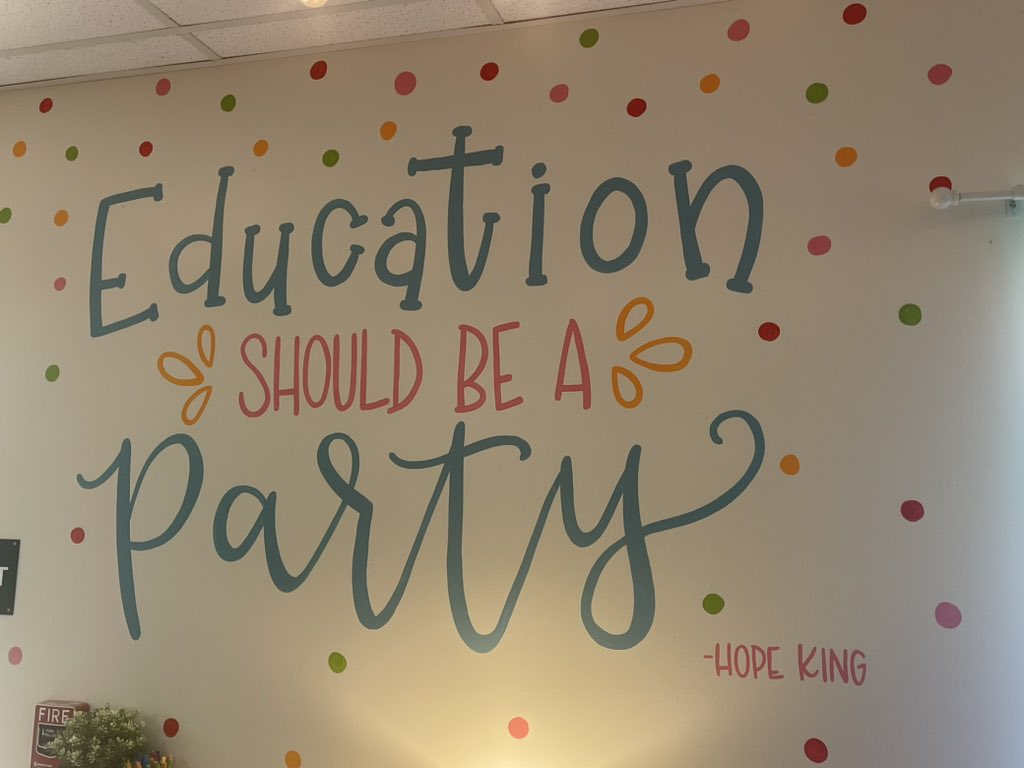 Education
SHOULD BE A
Party
-HOPE KING
FIRE
T